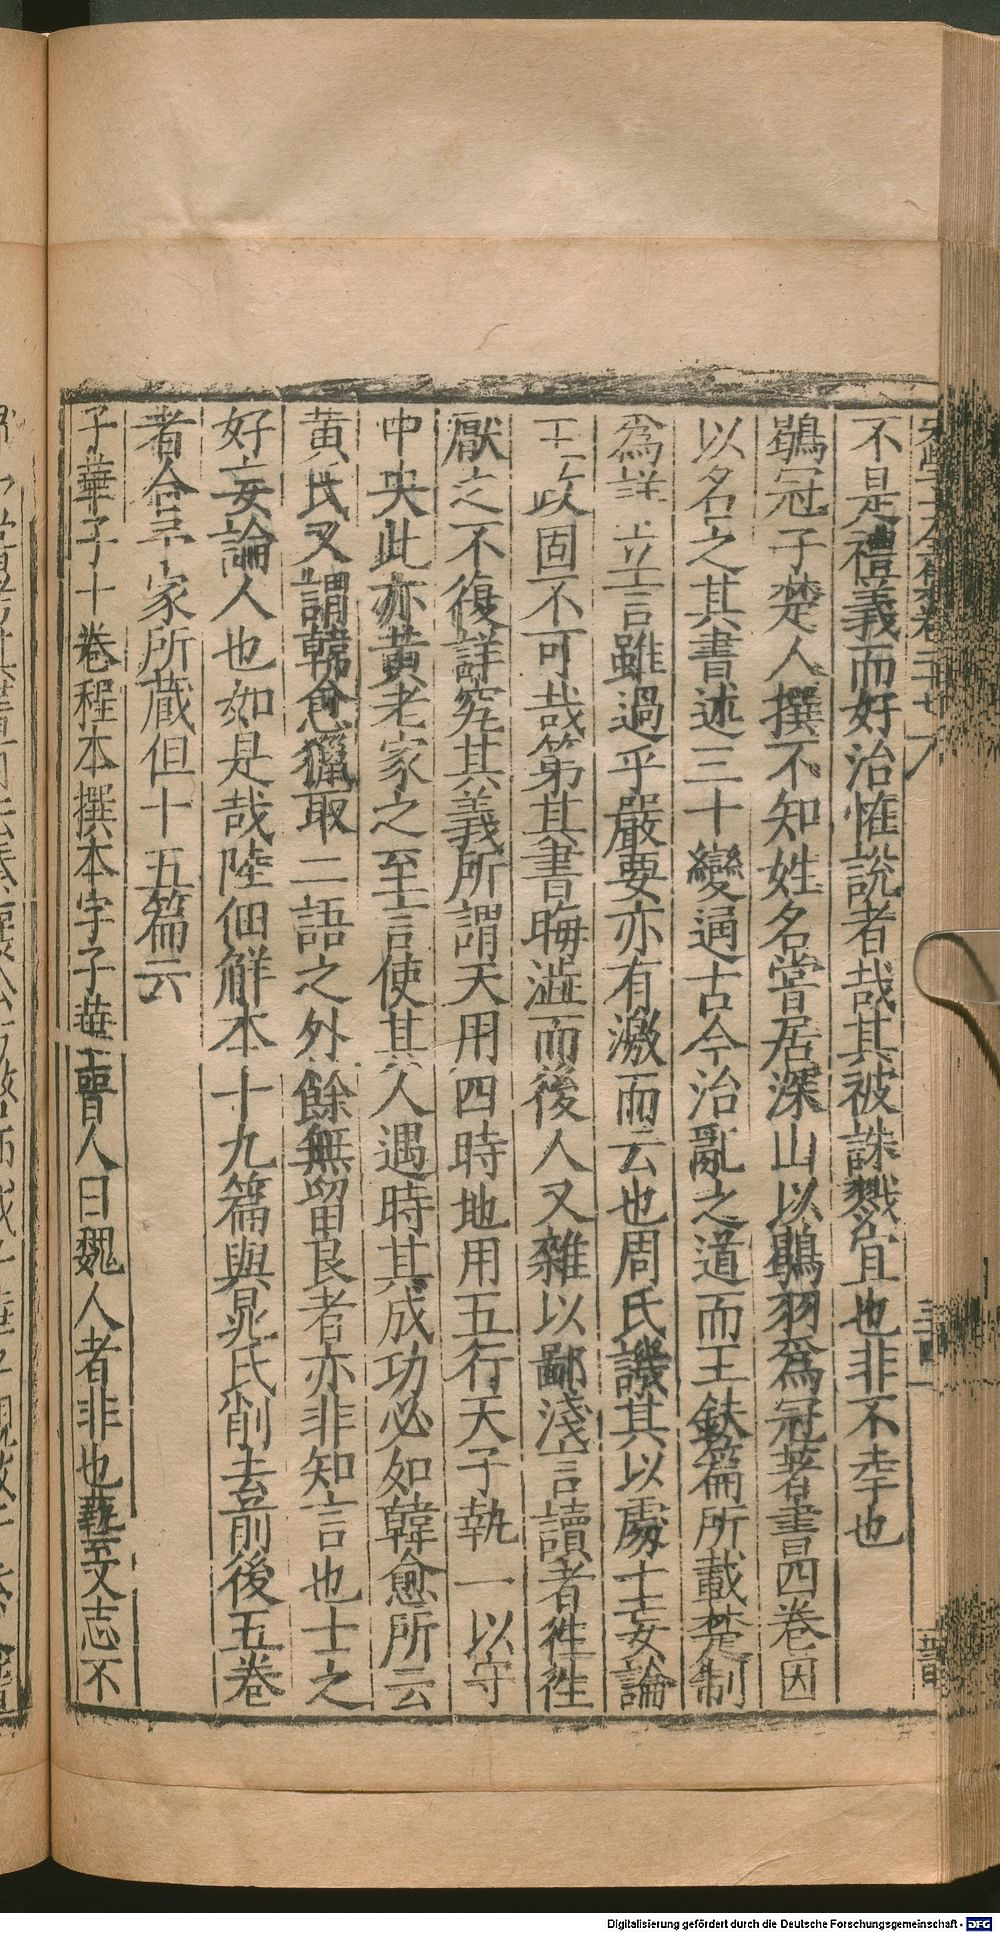 不是禮義而好治惟說者哉其被誅戮宜也非不幸也
鶡冠子楚人撰不知姓名嘗居深山以鶡羽爲冠著書四卷因
以名之其書述三十變通古今治亂之道而王鈇篇所載楚制
爲詳立言雖過乎嚴要亦有激而云也周氏譏其以處士妄論
王政固不可哉第其書晦澁而後人又雜以鄙淺言讀者徃徃
厭之不復詳究其義所謂天用四時地用五行天子執一以守
中央此亦黃老家之至言使其人遇時其成功必如韓愈所云
黃氏又謂韓愈獵取二語之外餘無留良者亦非知言也士之
好妄論人也如是哉陸佃解本十九篇與晁氏削去前後五卷
者合予家所藏但十五篇云
子華子十卷程本撰本字子華晉人曰魏人者非也藝文志不
Digitalisierung gefördert durch die Deutsche Forschungsgemeinschaft - DFG